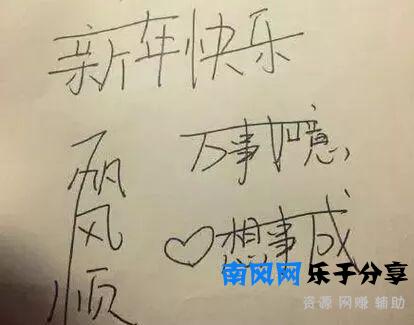 新年快乐
一帆风顺
万事如意
♡想事成
南风网 乐于分享
资源 网赚 辅助